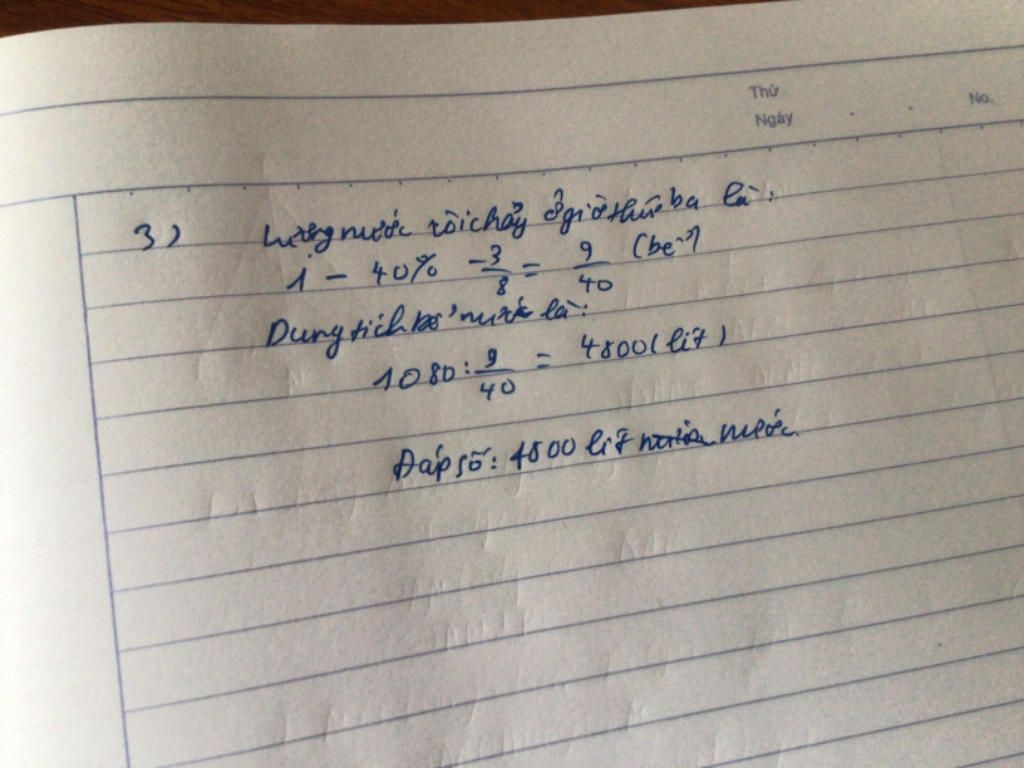 Thứ
Ngày
No.
3) Lượng nước vòi chảy ở giờ thứ ba là:
1 - 40% - 3/8 = 9/40 (bể)
Dung tích bể nước là:
1080 : 9/40 = 4800 (lít)
Đáp số: 4800 lít nước.